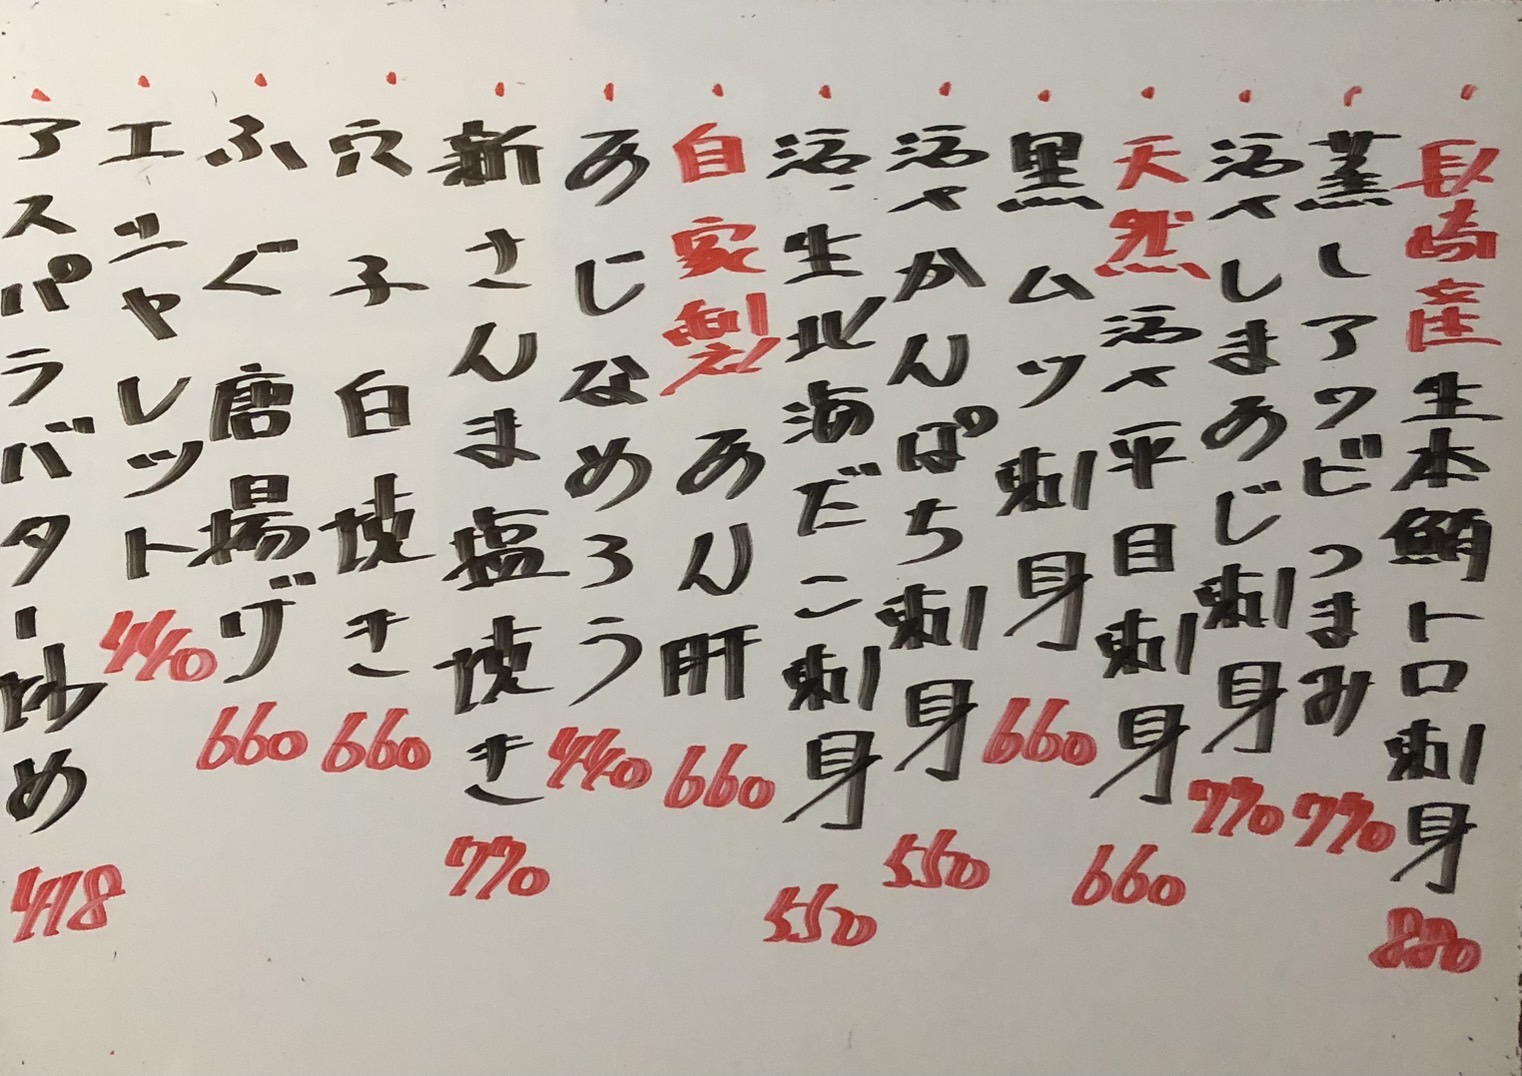 ・長崎産生本鮪トロ刺身 880
・蒸しアワビつまみ 770
・活〆しまあじ刺身 770
・天然活〆平目刺身 660
・黒ムツ刺身 660
・活〆かんぱち刺身 550
・活・生北海だこ刺身 550
・自家製あん肝 660
・あじなめろう 440
・新さんま塩焼き 770
・穴子白焼き 660
・ふぐ唐揚げ 660
・エシャレット 440
・アスパラバター炒め 418